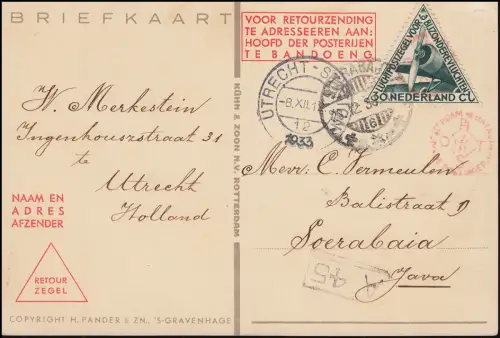 BRIEFKAART
VOOR RETOURZENDING
TE ADRESSEEREN AAN:
HOOFD DER POSTERIJEN
TE BANDOENG
UTRECHT - S
8.XII.
12
1933
LUCHTPOSTZEGEL VOOR BIJZONDERE VLUCHTEN
30 NEDERLAND CT
W. Merkestein
Ingenhouszstraat 31
te
Utrecht
Holland
NAAM EN
ADRES
AFZENDER
RETOUR
ZEGEL
COPYRIGHT H. PANDER & ZN., 'S-GRAVENHAGE
KÜHN & ZOON N.V. ROTTERDAM
Mevr. C. Vermeulen
Balistraat 9
Soerabaia
Java
45